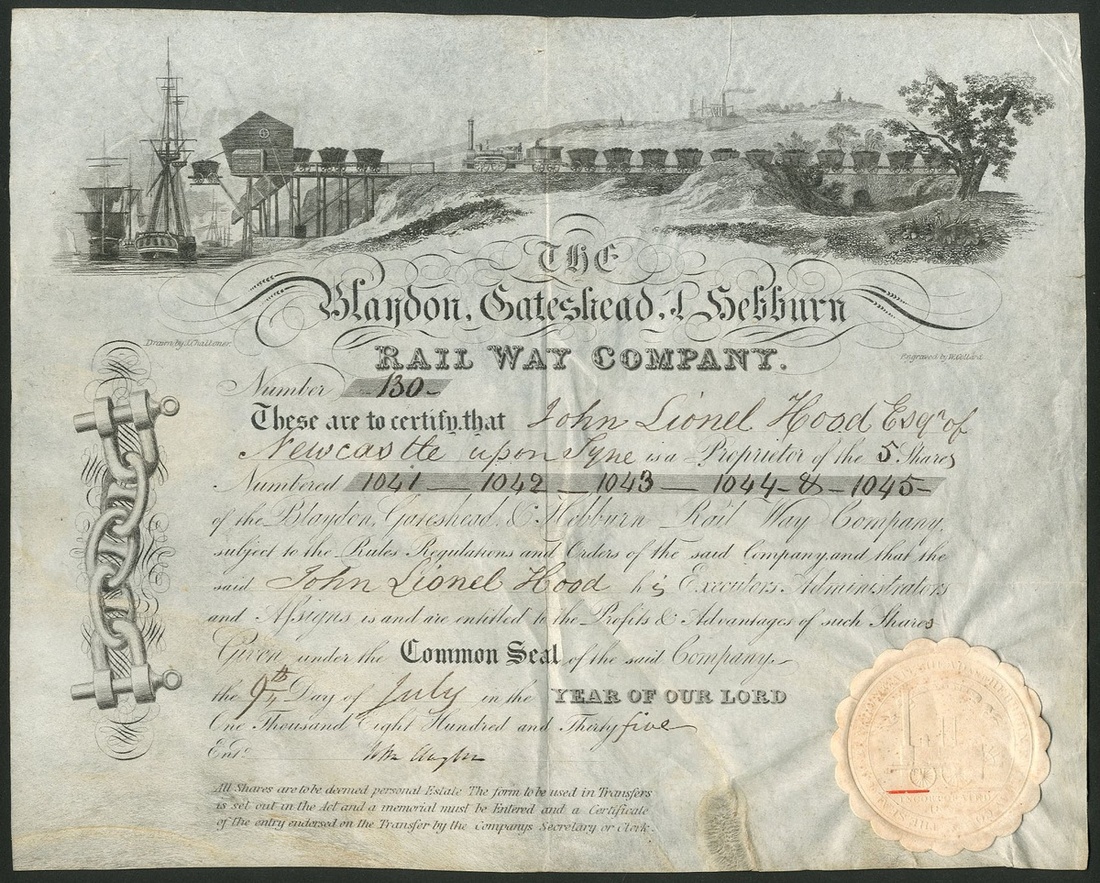 THE
Blaydon, Gateshead, & Hebburn
Drawn by J. Challoner.
RAIL WAY COMPANY.
Engraved by W. Collard
Number 130
These are to certify that John Lionel Hood Esqr. of
Newcastle upon Tyne is a Proprietor of the 5 Shares
Numbered 1041 — 1042 — 1043 — 1044 & 1045
of the Blaydon, Gateshead, & Hebburn Rail Way Company,
subject to the Rules Regulations and Orders of the said Company, and that the
said John Lionel Hood his Executors Administrators
and Assigns is and are entitled to the Profits & Advantages of such Shares
Given under the Common Seal of the said Company
the 9th Day of July in the YEAR OF OUR LORD
One Thousand Eight Hundred and Thirty five
Entd.
All Shares are to be deemed personal Estate The form to be used in Transfers
is set out in the Act and a memorial must be Entered and a Certificate
of the entry endorsed on the Transfer by the Companys Secretary or Clerk.